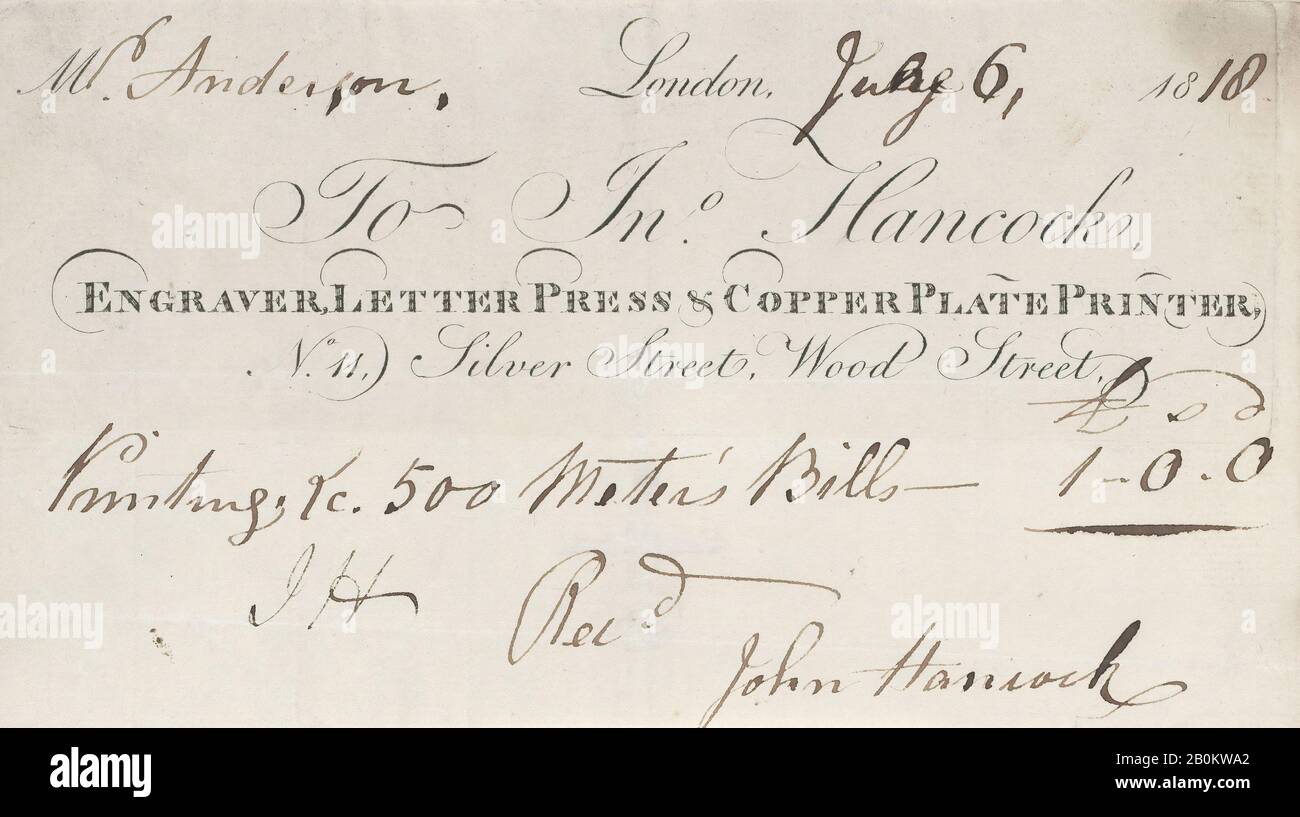 Mr. Anderson, London, July 6, 1818
To Jno. Hancock,
ENGRAVER, LETTER PRESS & COPPER PLATE PRINTER,
No. 11, Silver Street, Wood Street,
£ s d
Printing, &c. 500 Meter's Bills — 1 - 0 - 0
JH Recd
John Hancock
alamy
Image ID: 2B0KWA2
www.alamy.com